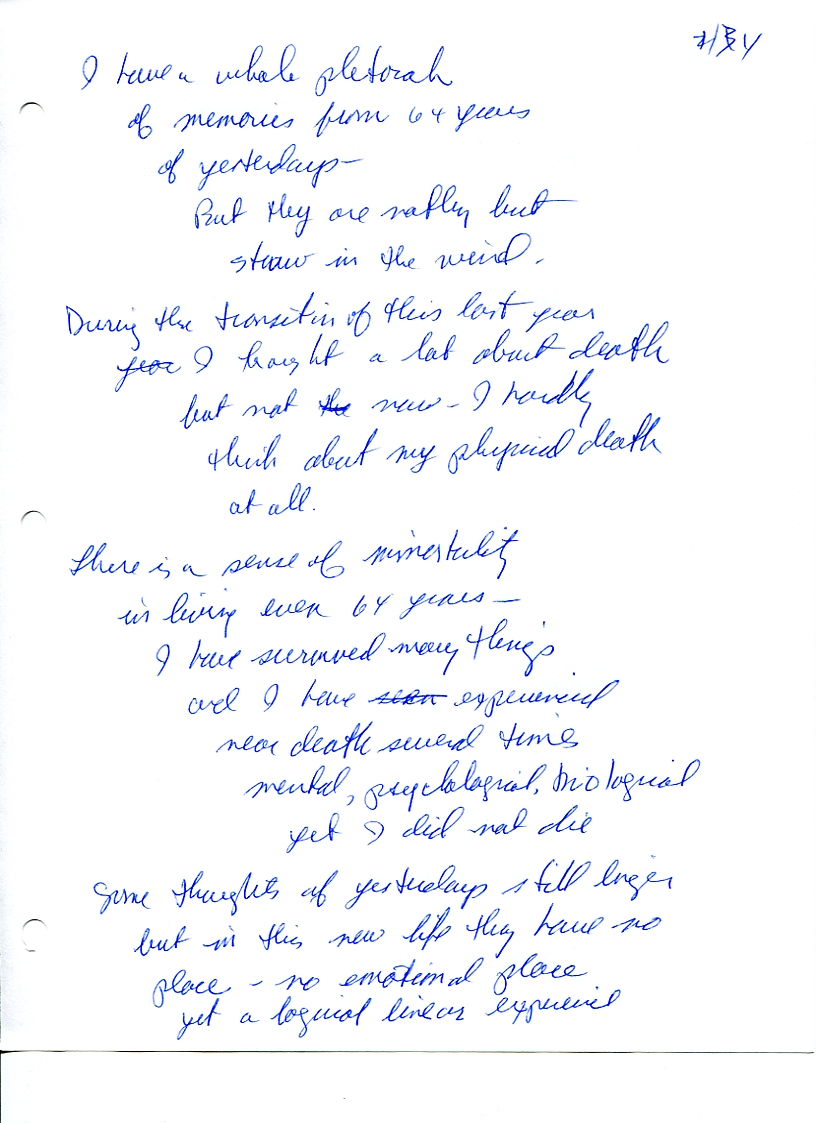 I have a whole pletorah
of memories from 64 years
of yesterdays—
But they are nothing but
straw in the wind.
During the transition of this last year
year I thought a lot about death
but not the now - I hardly
think about my physical death
at all.
There is a sense of immortality
in living even 64 years—
I have survived many things
and I have seen experienced
near death several times
mental, psychological, biological
yet I did not die
Some thoughts of yesterdays still linger
but in this new life they have no
place - no emotional place
yet a logical linear experience